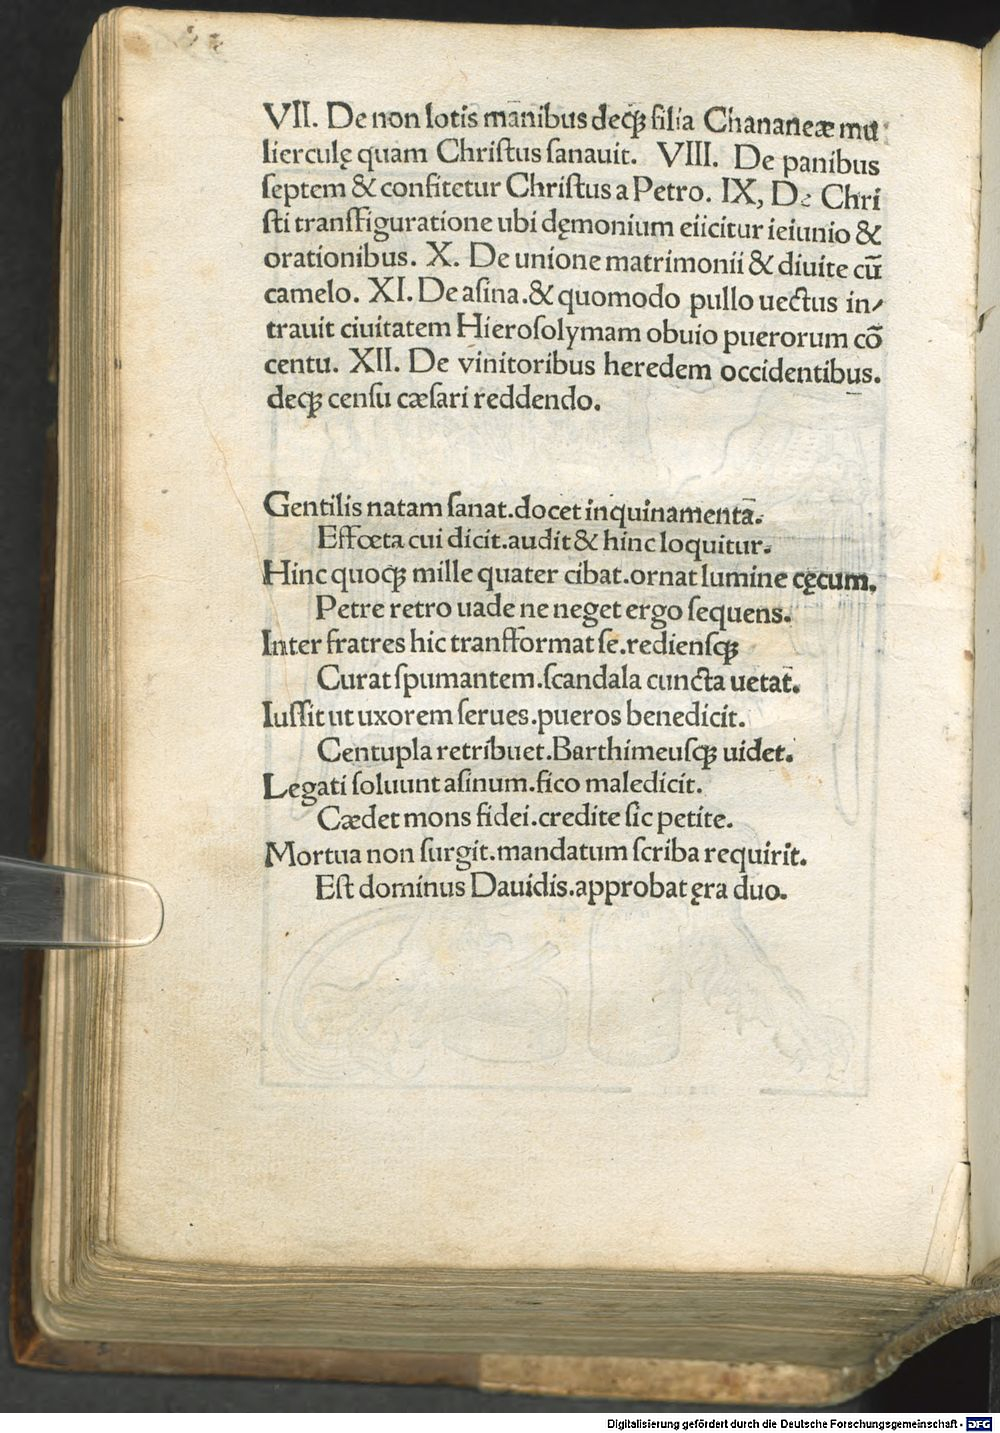 VII. De non lotis manibus deqꝫ filia Chananeæ mu
lierculę quam Chriſtus ſanauit. VIII. De panibus
ſeptem & confitetur Chriſtus a Petro. IX, De Chri
ſti tranſfiguratione ubi dęmonium eiicitur ieiunio &
orationibus. X. De unione matrimonii & diuite cū
camelo. XI. De aſina.& quomodo pullo uectus in/
trauit ciuitatem Hieroſolymam obuio puerorum cō
centu. XII. De vinitoribus heredem occidentibus.
deqꝫ cenſu cæſari reddendo.
Gentilis natam ſanat.docet inquinamenta.
Effœta cui dicit.audit & hinc loquitur.
Hinc quoqꝫ mille quater cibat.ornat lumine cęcum.
Petre retro uade ne neget ergo ſequens.
Inter fratres hic tranſformat ſe.redienſqꝫ
Curat ſpumantem.ſcandala cuncta uetat.
Iuſſit ut uxorem ſerues.pueros benedicit.
Centupla retribuet.Barthimeuſqꝫ uidet.
Legati ſoluunt aſinum.fico maledicit.
Cædet mons fidei.credite ſic petite.
Mortua non ſurgit.mandatum ſcriba requirit.
Eſt dominus Dauidis.approbat ęra duo.
Digitalisierung gefördert durch die Deutsche Forschungsgemeinschaft - DFG